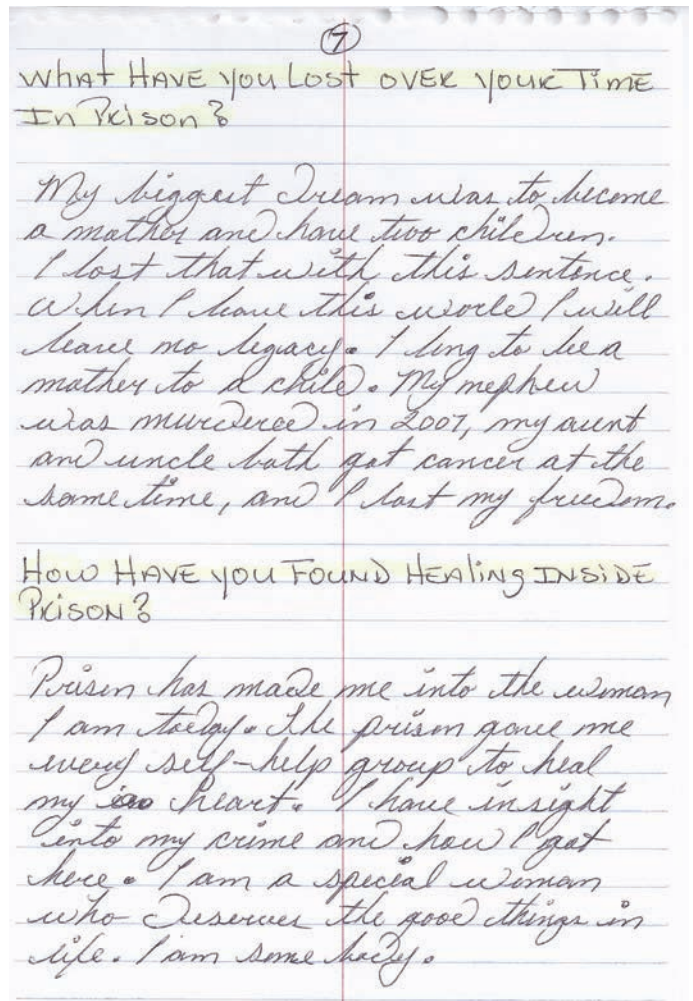 7
WHAT HAVE YOU LOST OVER YOUR TIME
IN PRISON?
My biggest dream was to become
a mother and have two children.
I lost that with this sentence.
When I leave this world I will
leave no legacy. I long to be a
mother to a child. My nephew
was murdered in 2007, my aunt
and uncle both got cancer at the
same time, and I lost my freedom.
HOW HAVE YOU FOUND HEALING INSIDE
PRISON?
Prison has made me into the woman
I am today. The prison gave me
every self-help group to heal
my heart. I have insight
into my crime and how I got
here. I am a special woman
who deserves the good things in
life. I am some body.